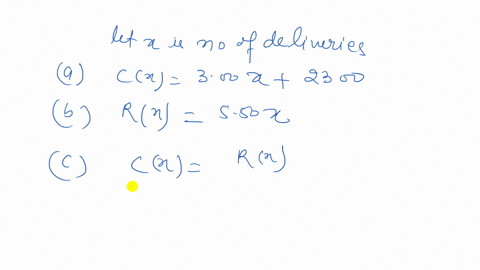 let x is no of deliveries
(a) C(x) = 3.00x + 2300
(b) R(x) = 5.50x
(c) C(x) = R(x)